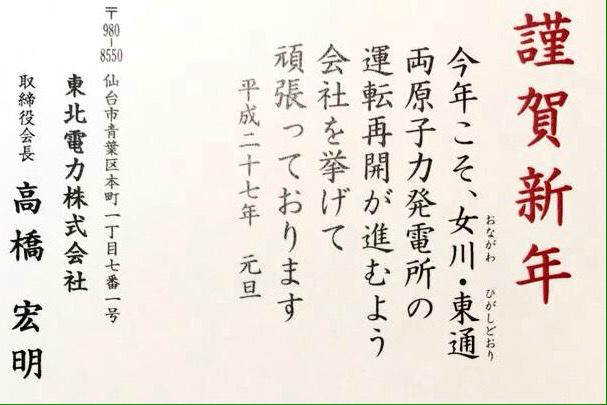 謹賀新年
今年こそ、女川・東通
おながわ
ひがしどおり
両原子力発電所の
運転再開が進むよう
会社を挙げて
頑張っております
平成二十七年 元旦
〒980-8550 仙台市青葉区本町一丁目七番一号
東北電力株式会社
取締役会長 高橋宏明